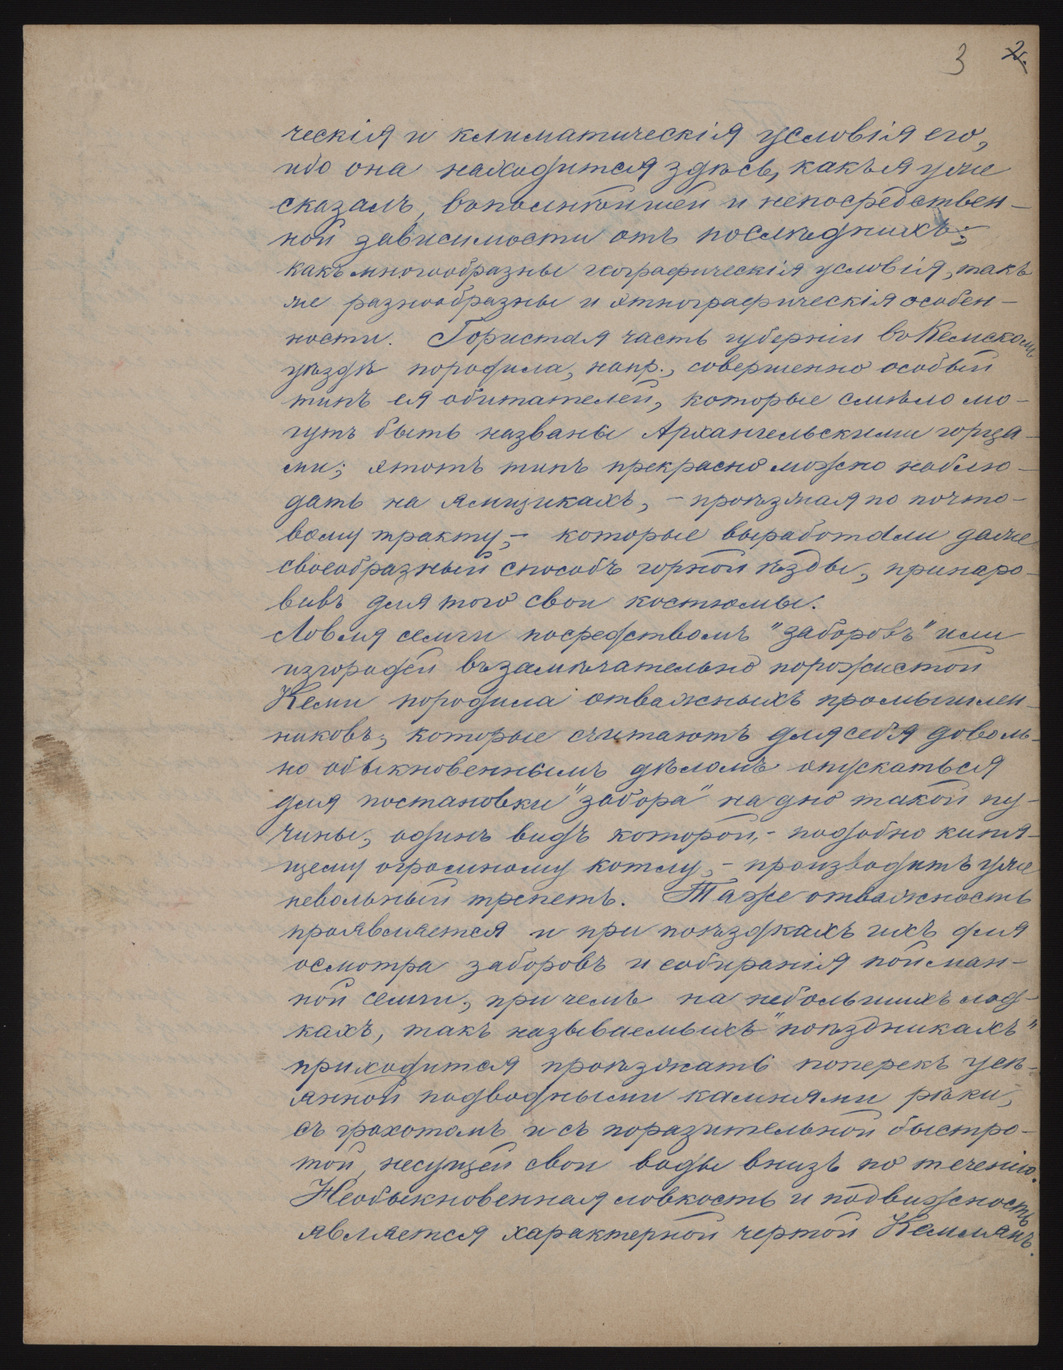 3 2.
ческія и климатическія условія его,
ибо она находится здѣсь, какъ я уже
сказалъ, вополнѣйшей и непосредствен-
ной зависимости отъ послѣднихъ:
какъ многообразны географическія условія, такъ
же разнообразны и этнографическія особен-
ности. Гористая часть губерніи во Кемскомъ
уѣздѣ породила, напр., совершенно особый
типъ ея обитателей, которые смѣло мо-
гутъ быть названы Архангельскими горца-
ми; этотъ типъ прекрасно можно наблю-
дать на ямщикахъ, - проѣзжая по почто-
вому тракту, - которые выработали даже
своеобразный способъ горной ѣзды, принаро-
вивъ для того свои костюмы.
Ловля семги посредствомъ "заборовъ" или
изгородей въ замѣчательно порожистой
Кеми породила отважныхъ промышлен-
никовъ, которые считаютъ для себя доволь-
но обыкновеннымъ дѣломъ опускаться
для постановки "забора" на дно такой пу-
чины, одинъ видъ которой, - подобно кипя-
щему огромному котлу, - производитъ уже
невольный трепетъ. Таже отважность
проявляется и при поѣздкахъ ихъ для
осмотра заборовъ и собиранія пойман-
ной семги, причемъ на небольшихъ лод-
кахъ, такъ называемыхъ "поѣздникахъ"
приходится проѣзжать поперекъ усѣ-
янной подводными камнями рѣки,
съ грохотомъ и съ поразительной быстро-
той, несущей свои воды внизъ по теченію.
Необыкновенная ловкость и подвижность
является характерной чертой Кемлянъ.